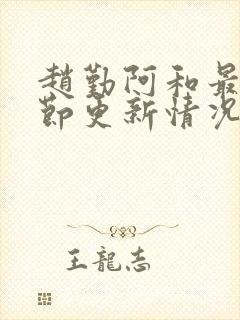 趙勤阿和最
節更新情況
王龍志